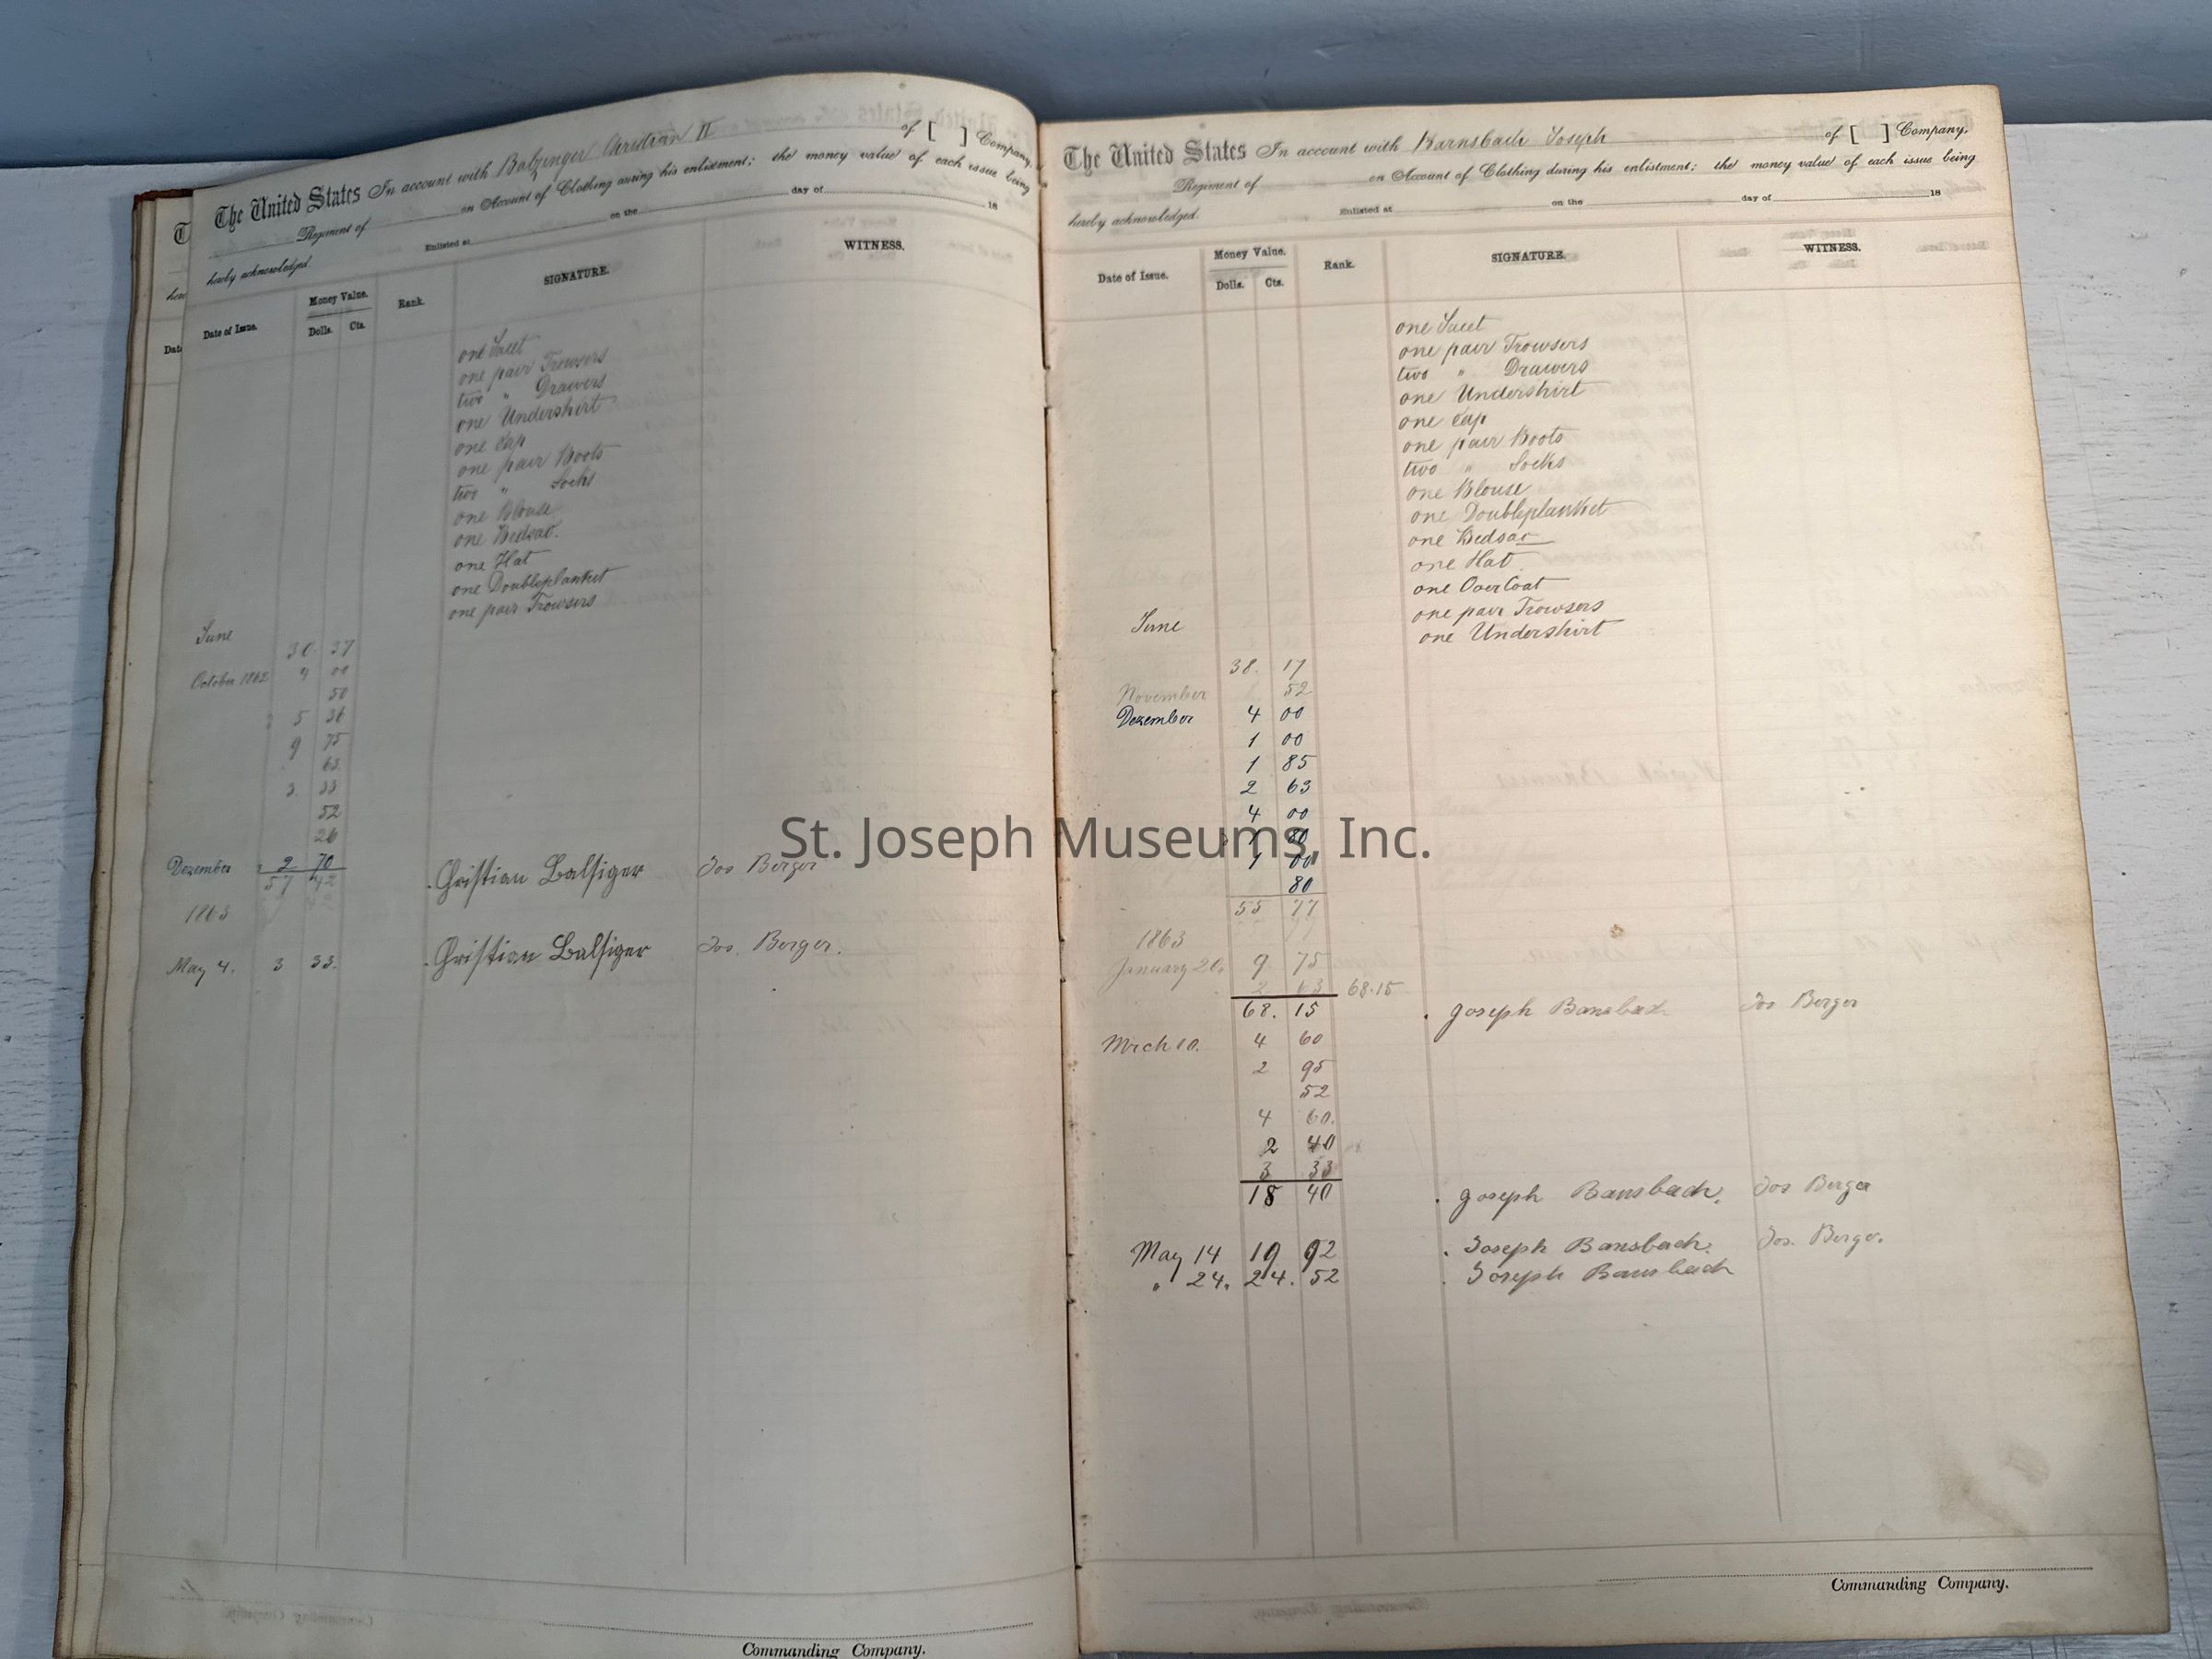 The United States In account with Balzinger Christian II of [ ] Company,
Regiment of on Account of Clothing during his enlistment; the money value of each issue being
hereby acknowledged. Enlisted at on the day of 18
Date of Issue. Money Value. Dolls. Cts. Rank. SIGNATURE. WITNESS.
one Jacet
one pair Trowsers
two " Drawers
one Undershirt
one Cap
one pair Boots
two " Socks
one Blouse
one Bedsac.
one Hat
one Doubleplanket
one pair Trowsers
June
30 37
October 1862 4 00
50
5 38
9 75
63
3. 33
52
26
Dezember 2 70 Christian Balsiger Jos Berger
57 42
1863
May 4. 3 33. Christian Balsiger Jos. Berger.
Commanding Company.
The United States In account with Barnsbach Joseph of [ ] Company,
Regiment of on Account of Clothing during his enlistment; the money value of each issue being
hereby acknowledged. Enlisted at on the day of 18
Date of Issue. Money Value. Dolls. Cts. Rank. SIGNATURE. WITNESS.
one Jacet
one pair Trowsers
two " Drawers
one Undershirt
one Cap
one pair Boots
two " Socks
one Blouse
one Doubleplanket
one Bedsac
one Hat
one OverCoat
one pair Trowsers
June one Undershirt
38. 17
November 52
Dezember 4 00
1 00
1 85
2 63
4 00
1 80
1 00
80
55 77
1863
January 20. 9 75
2 63 68.15
68. 15 Joseph Bansbach Jos Berger
Mrch 10. 4 60
2 95
52
4 60.
2 40
3 33
18 40 Joseph Bansbach. Jos Berger
May 14 19 92 Joseph Bansbach. Jos. Berger.
" 24. 24. 52 Joseph Bansbach
Commanding Company.
St. Joseph Museums, Inc.